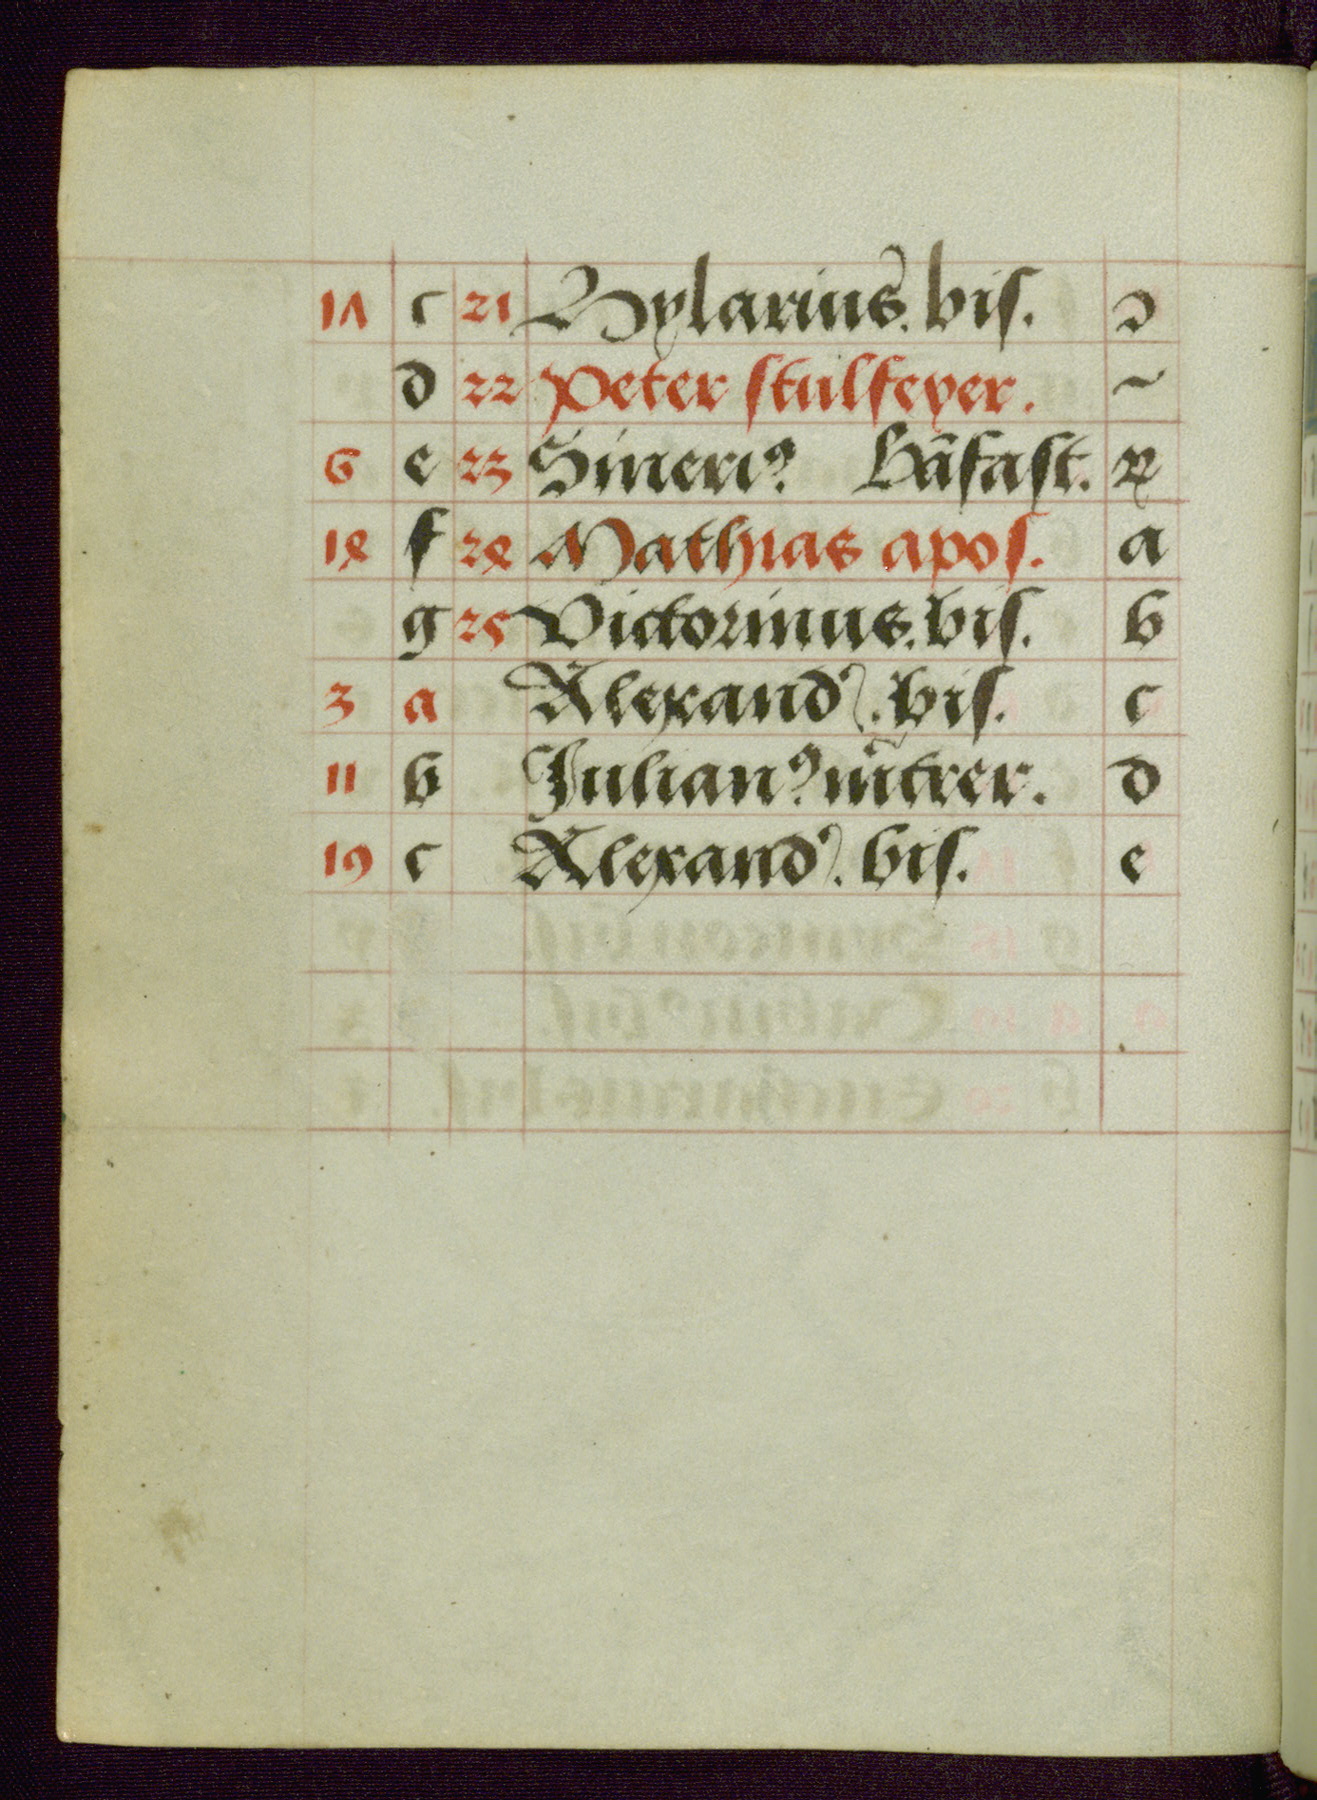 17 c 21 Hylarius. bis. ɔ
d 22 Peter stulfeyer. ~
6 e 23 Sineriꝰ Ban̄fast. ꝝ
14 f 24 Mathias apos. a
g 25 Victorinus. bis. b
3 a Alexand. bis. c
11 b Julianꝰ. d
19 c Alexand. bis. e